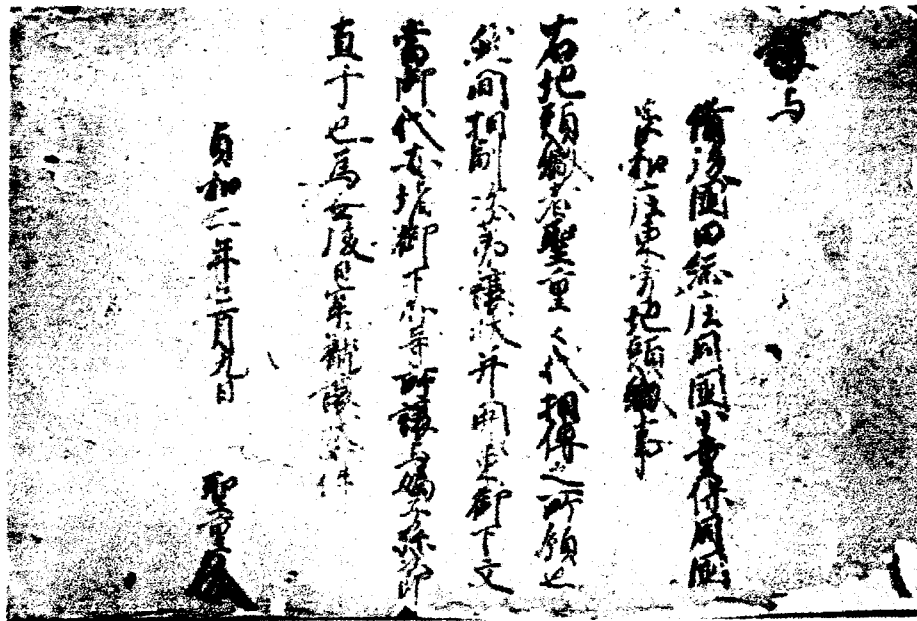 譲与
備後国田総庄同国小童保同国
長和庄東方地頭職事
右地頭職者聖重々代相傳之所領也
然間相副次第譲状并関東御下文
当御代安堵御下文等所譲与嫡子弥次郎
直干也為女後日家龍譲状如件
貞和二年三月九日
聖重